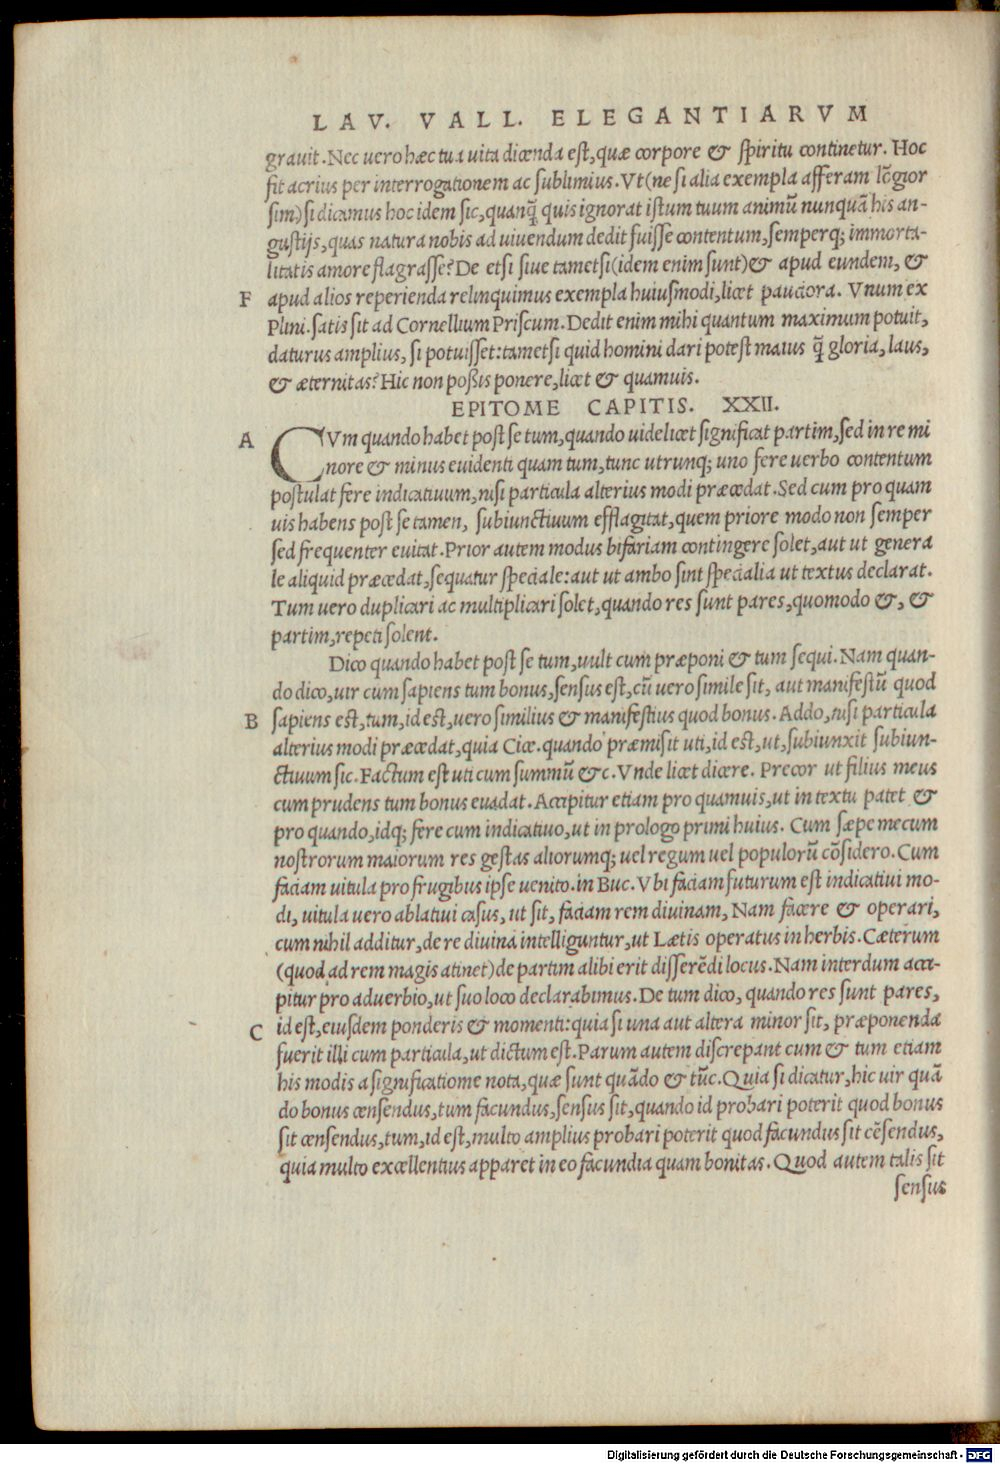 LAV. VALL. ELEGANTIARVM
grauit. Nec uero hæc tua uita dicenda est, quæ corpore & spiritu continetur. Hoc
fit acrius per interrogationem ac sublimius. Vt (ne si alia exempla afferam lõgior
sim) si dicamus hoc idem sic, quanq̃ quis ignorat istum tuum animũ nunquã his an-
gustijs, quas natura nobis ad uiuendum dedit fuisse contentum, semperq; immorta-
litatis amore flagrasse? De etsi siue tametsi (idem enim sunt) & apud eundem, &
F apud alios reperienda relinquimus exempla huiusmodi, licet pauciora. Vnum ex
Plini. satis sit ad Cornelium Priscum. Dedit enim mihi quantum maximum potuit,
daturus amplius, si potuisset: tametsi quid homini dari potest maius q̃ gloria, laus,
& æternitas? Hic non possis ponere, licet & quamuis.
EPITOME CAPITIS. XXII.
A CVm quando habet post se tum, quando uidelicet significat partim, sed in re mi
nore & minus euidenti quam tum, tunc utrunq; uno fere uerbo contentum
postulat fere indicatiuum, nisi particula alterius modi præcedat. Sed cum pro quam
uis habens post se tamen, subiunctiuum efflagitat, quem priore modo non semper
sed frequenter euitat. Prior autem modus bifariam contingere solet, aut ut genera
le aliquid præcedat, sequatur speciale: aut ut ambo sint specialia ut textus declarat.
Tum uero duplicari ac multiplicari solet, quando res sunt pares, quomodo &, &
partim, repeti solent.
Dico quando habet post se tum, uult cum præponi & tum sequi. Nam quan-
do dico, uir cum sapiens tum bonus, sensus est, cũ uero simile sit, aut manifestũ quod
B sapiens est, tum, id est, uero similius & manifestius quod bonus. Addo, nisi particula
alterius modi præcedat, quia Cice. quando præmisit uti, id est, ut, subiunxit subiun-
ctiuum sic. Factum est uti cum summũ &c. Vnde licet dicere. Precor ut filius meus
cum prudens tum bonus euadat. Accipitur etiam pro quamuis, ut in textu patet &
pro quando, idq; fere cum indicatiuo, ut in prologo primi huius. Cum sæpe mecum
nostrorum maiorum res gestas aliorumq; uel regum uel populorũ cõsidero. Cum
faciam uitula pro frugibus ipse uenito. in Buc. Vbi faciam futurum est indicatiui mo-
di, uitula uero ablatiui casus, ut sit, faciam rem diuinam, Nam facere & operari,
cum nihil additur, de re diuina intelliguntur, ut Lætis operatus in herbis. Cæterum
(quod ad rem magis atinet) de partim alibi erit differẽdi locus. Nam interdum acci-
pitur pro aduerbio, ut suo loco declarabimus. De tum dico, quando res sunt pares,
C id est, eiusdem ponderis & momenti: quia si una aut altera minor sit, præponenda
fuerit illi cum particula, ut dictum est. Parum autem discrepant cum & tum etiam
his modis a significatiome nota, quæ sunt quãdo & tũc. Quia si dicatur, hic uir quã
do bonus censendus, tum facundus, sensus sit, quando id probari poterit quod bonus
sit censendus, tum, id est, multo amplius probari poterit quod facundus sit cẽsendus,
quia multo excellentius apparet in eo facundia quam bonitas. Quod autem talis sit
sensus
Digitalisierung gefördert durch die Deutsche Forschungsgemeinschaft - DFG